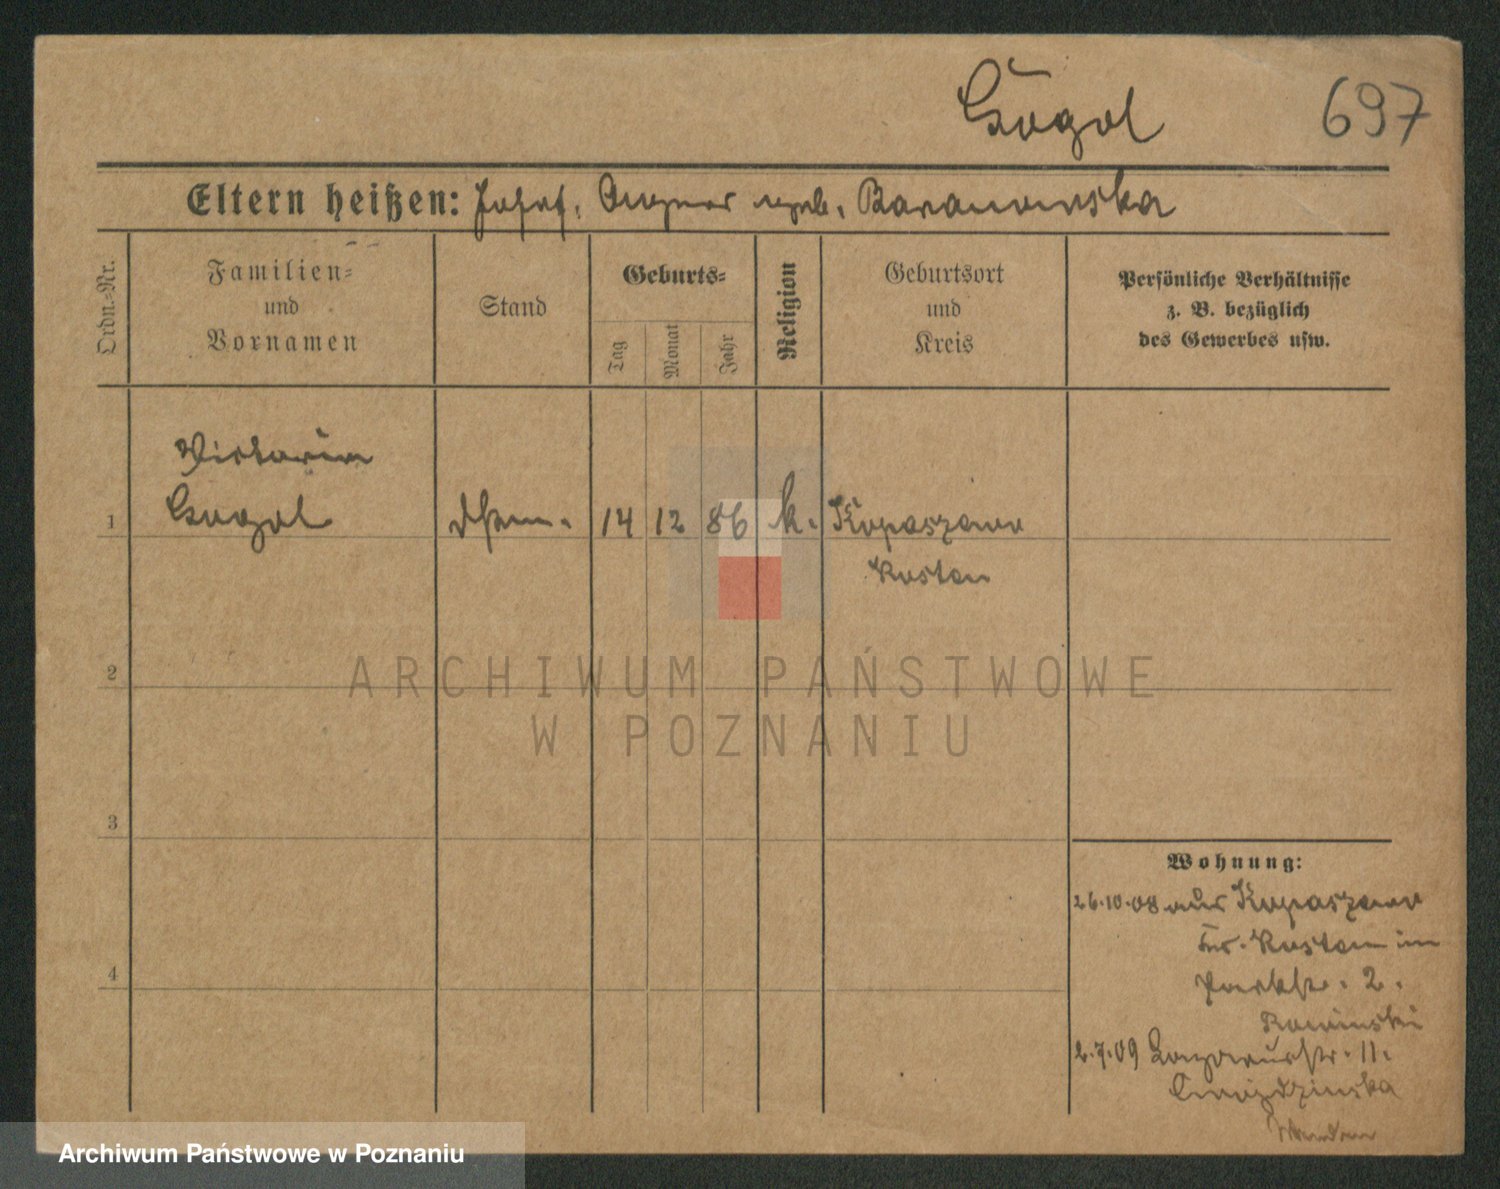 Gogol 697
Eltern heißen: Josef, Agnes geb. Baranowska
Ordn.=Nr.
Familien=
und
Vornamen
Stand
Geburts=
Tag
Monat
Jahr
Religion
Geburtsort
und
Kreis
Persönliche Verhältnisse
z. B. bezüglich
des Gewerbes usw.
Victoria
1 Gogol 14 12 86 k. Kopaszewo
Kosten
2
ARCHIWUM PAŃSTWOWE
W POZNANIU
3
Wohnung:
26.10.08 aus Kopaszewo
Kr. Kosten im
Parkstr. 2.
4
2.7.09 Lazarusstr. 11.
Archiwum Państwowe w Poznaniu